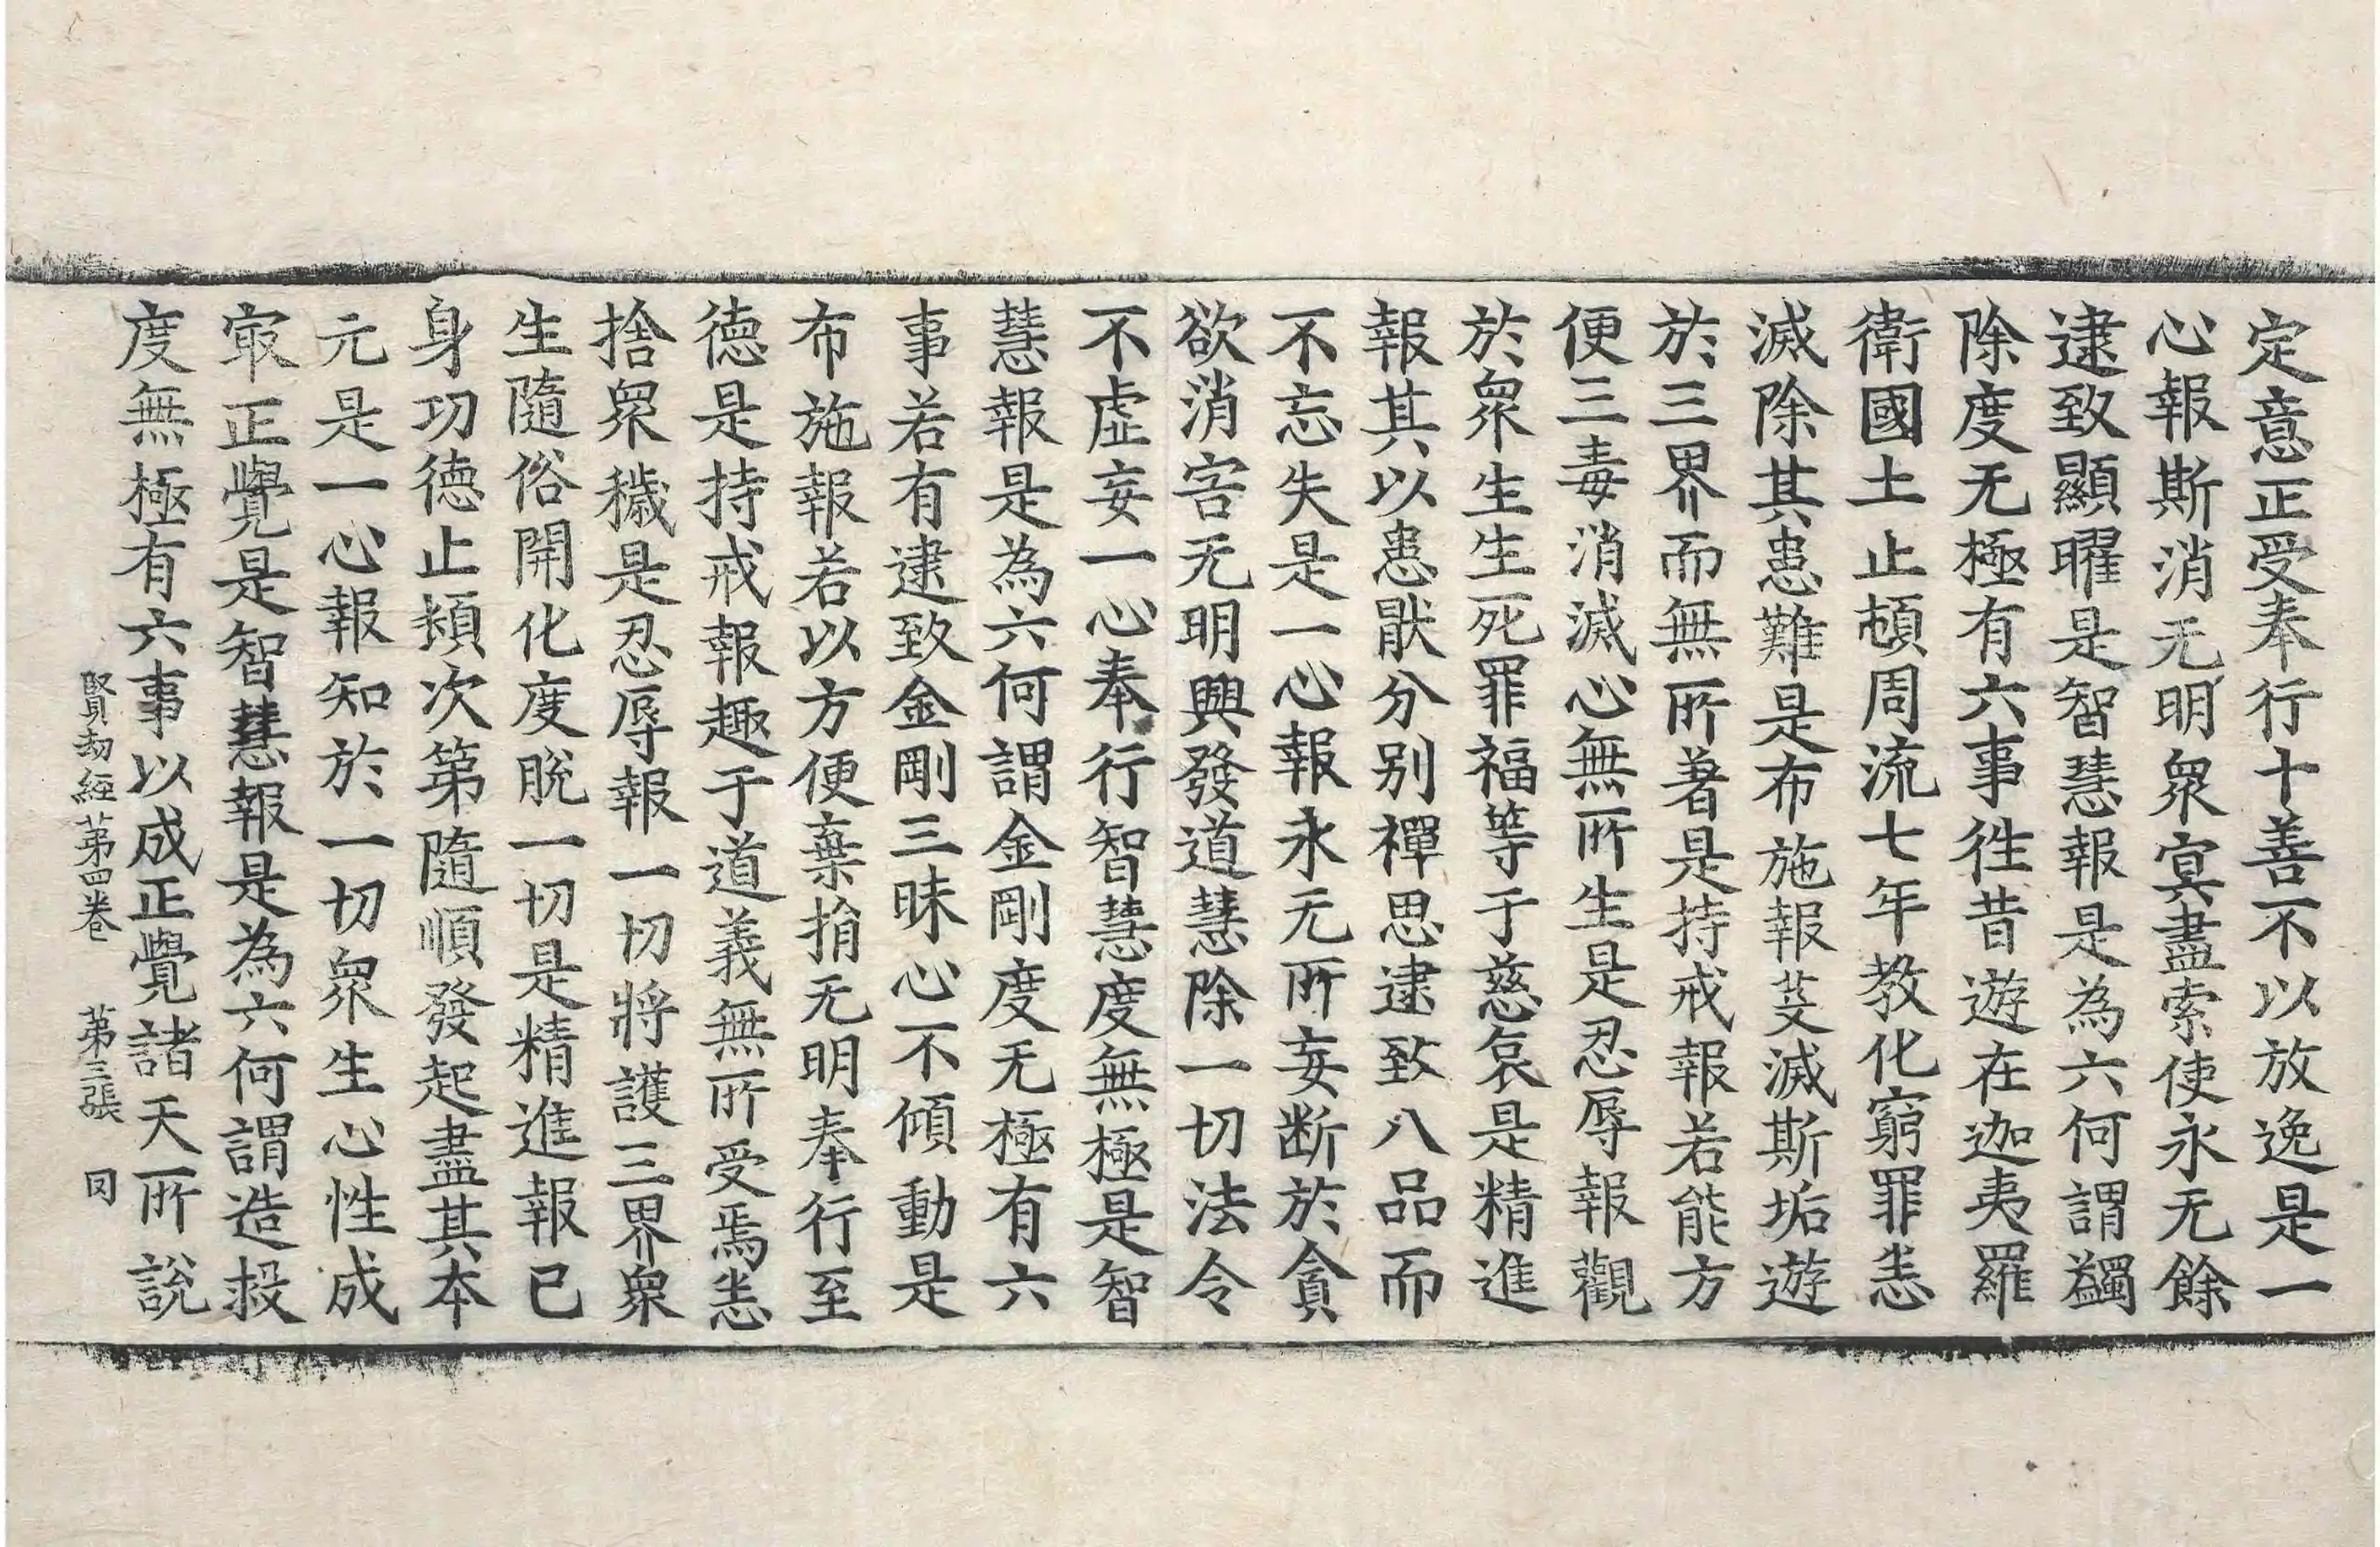 定意正受奉行十善不以放逸是一
心報斯消无明衆冥盡索使永无餘
逮致顯曜是智慧報是為六何謂蠲
除度无極有六事徃昔遊在迦夷羅
衛國土止頓周流七年教化窮罪恙
滅除其患難是布施報芟滅斯垢遊
於三界而無所著是持戒報若能方
便三毒消滅心無所生是忍辱報觀
於衆生生死罪福等于慈哀是精進
報其以患猒分别禪思逮致八品而
不忘失是一心報永无所妄断於貪
欲消害无明興發道慧除一切法令
不虛妄一心奉行智慧度無極是智
慧報是為六何謂金剛度无極有六
事若有逮致金剛三昧心不傾動是
布施報若以方便棄捐无明奉行至
德是持戒報趣于道義無所受焉恙
捨衆穢是忍辱報一切將護三界衆
生隨俗開化度脫一切是精進報已
身功德止頻次第隨順發起盡其本
元是一心報知於一切衆生心性成
冣正覺是智慧報是為六何謂造投
度無極有六事以成正覺諸天所說
賢劫經第四卷 第三張 罔